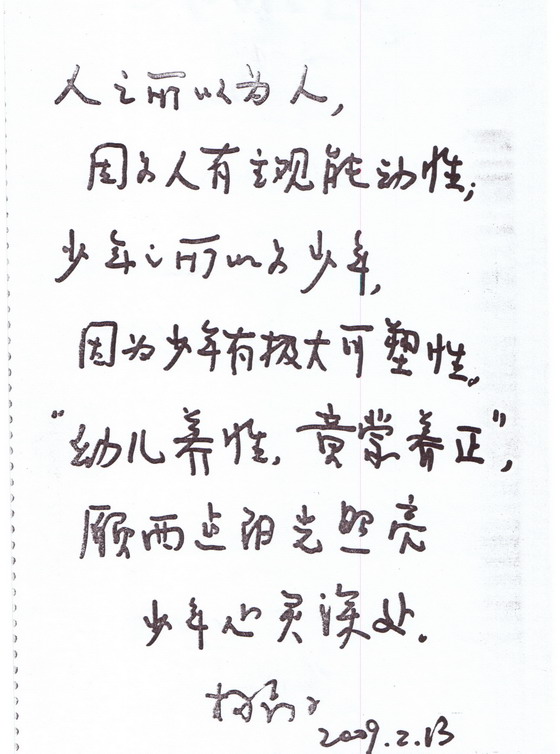 人之所以为人，
因为人有主观能动性；
少年之所以为少年，
因为少年有极大可塑性。
“幼儿养性，童蒙养正”，
愿西边阳光照亮
少年心灵深处。
2009.2.13